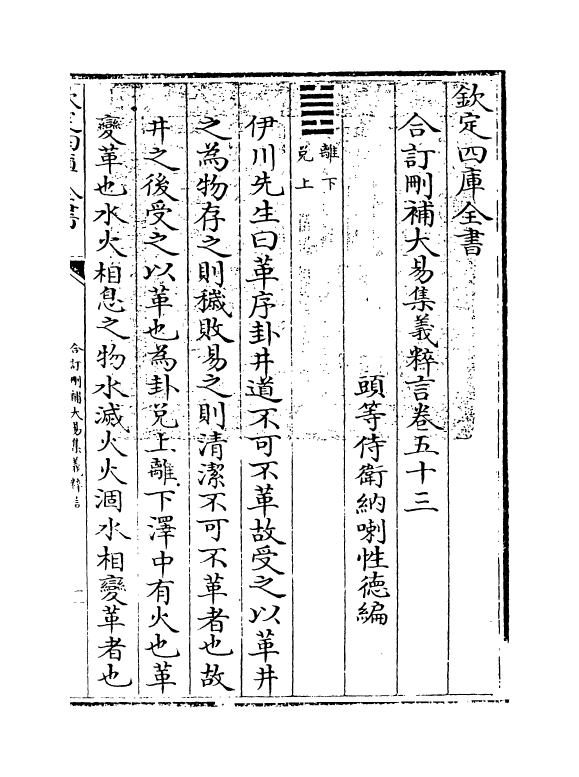 欽定四庫全書
合訂刪補大易集義粹言卷五十三
頭等侍衛納喇性德編
離下
兌上
伊川先生曰革序卦井道不可不革故受之以革井
之為物存之則穢敗易之則清潔不可不革者也故
井之後受之以革也為卦兌上離下澤中有火也革
變革也水火相息之物水滅火火涸水相變革者也
欽定四庫全書
合訂刪補大易集義粹言